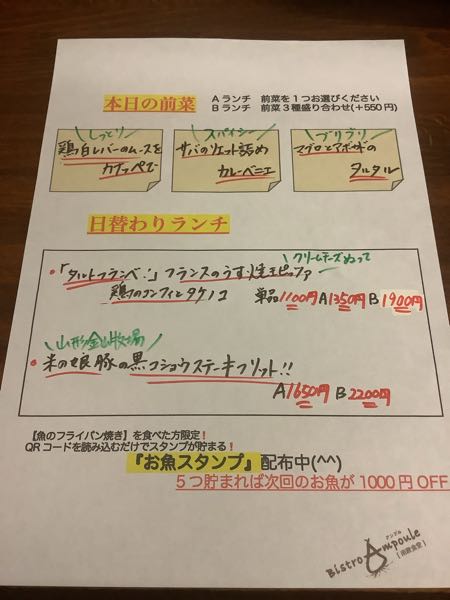 本日の前菜
Aランチ 前菜を1つお選びください
Bランチ 前菜3種盛り合わせ(+550円)
しっとり
鶏白レバーのムースを
カナッペで
スパイシー
サバのリエット詰め
カレーベニエ
プリプリ
マグロとアボカドの
タルタル
日替わりランチ
クリームチーズぬって
•「タルトフランベ!」フランスのうす焼きピッツァ
鶏のコンフィとタケノコ 単品1100円 A1350円 B1900円
山形金山牧場
•米の娘豚の黒コショウステーキフリット!!
A1650円 B2200円
【魚のフライパン焼き】を食べた方限定!
QRコードを読み込むだけでスタンプが貯まる!
『お魚スタンプ』配布中(^^)
5つ貯まれば次回のお魚が1000円OFF
アンプル
Bistro Ampoule
[南欧食堂]